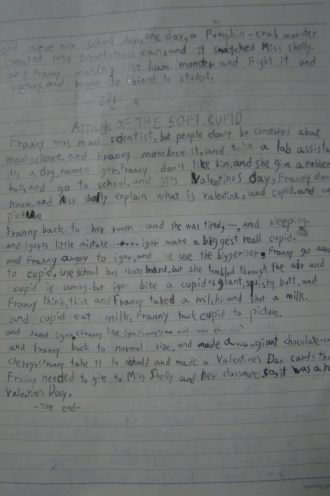 and more nice school days, one day, a Pumpkin-crab monster
cheaped into school trash can, and it snatched Miss shelly.
and Franny the ham monster and Fight it and
and begun to friend to student.
ATTACK OF THE 50Ft CUPID
Franny was mad scientist, but people don't be concerned about
mad science, and Franny mom knew it, and take a lab assista
it's a dog, named igor, Franny don't like him, and she give a rubber
ball, and go to school, and it's Valentine's day, Franny don
know, and Miss shelly explain what is valentine, and cupid, and
picture
Franny back to her room and she was tired, —, and sleeping.
and igor's little mistake igor make a biggest reall cupid.
and Franny angry to igor, and use the biggeriser, Franny go
to cupid, use school bus skate board, but she tumbled through the air and
cupid is coming. but igor bite a cupid's giant, squishy butt, and
Franny think, think and Franny taked a milch, and a milk.
and cupid eat milk, Franny back cupid to picture.
and igor,
and Franny back to normal size, and made a giant chocolate-co
cherry, franny take it to school, and made a Valentine's Day cards th
Franny needed to give to Miss Shelly and her classmate, so, it was a h
Valentine's Day.
-The end-